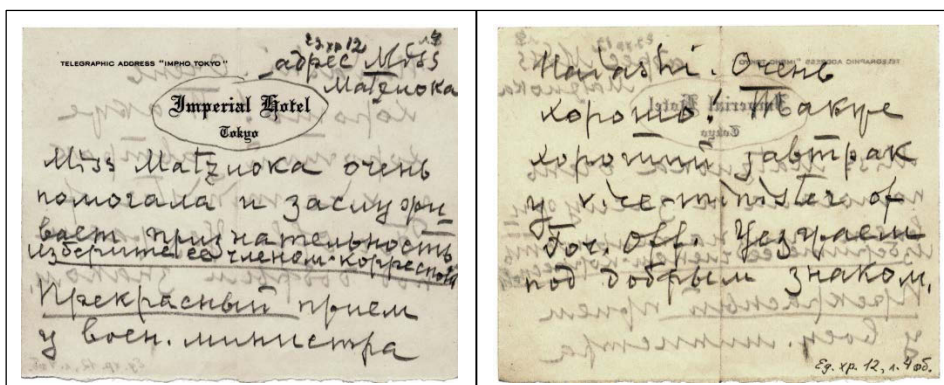 Ед. хр. 12 л. 4
адрес Miss
TELEGRAPHIC ADDRESS "IMPHO TOKYO"
Матzуока
Imperial Hotel
Tokyo
Miss Матzуока очень
помогала и заслужи
вает признательность
изберите ее членом-корреспонд
Прекрасный прием
у воен. министра
Hayashi. Очень
хорошо! Также
хороший завтрак
у vice-minister of
For. Off. Уезжаем
под добрым знаком.
Ед. хр. 12, л. 4 об.